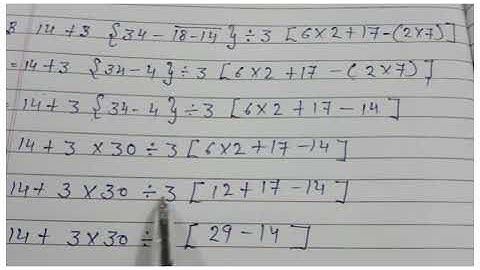 8 14+3 {34-1̅8̅-̅1̅4̅}÷3 [6×2+17-(2×7)]
=14+3 {34-4}÷3 [6×2+17-(2×7)]
14+3 {34-4}÷3 [6×2+17-14]
14+3×30÷3 [6×2+17-14]
14+ 3×30 ÷3 [12+17-14]
14+ 3×30÷ [29-14]